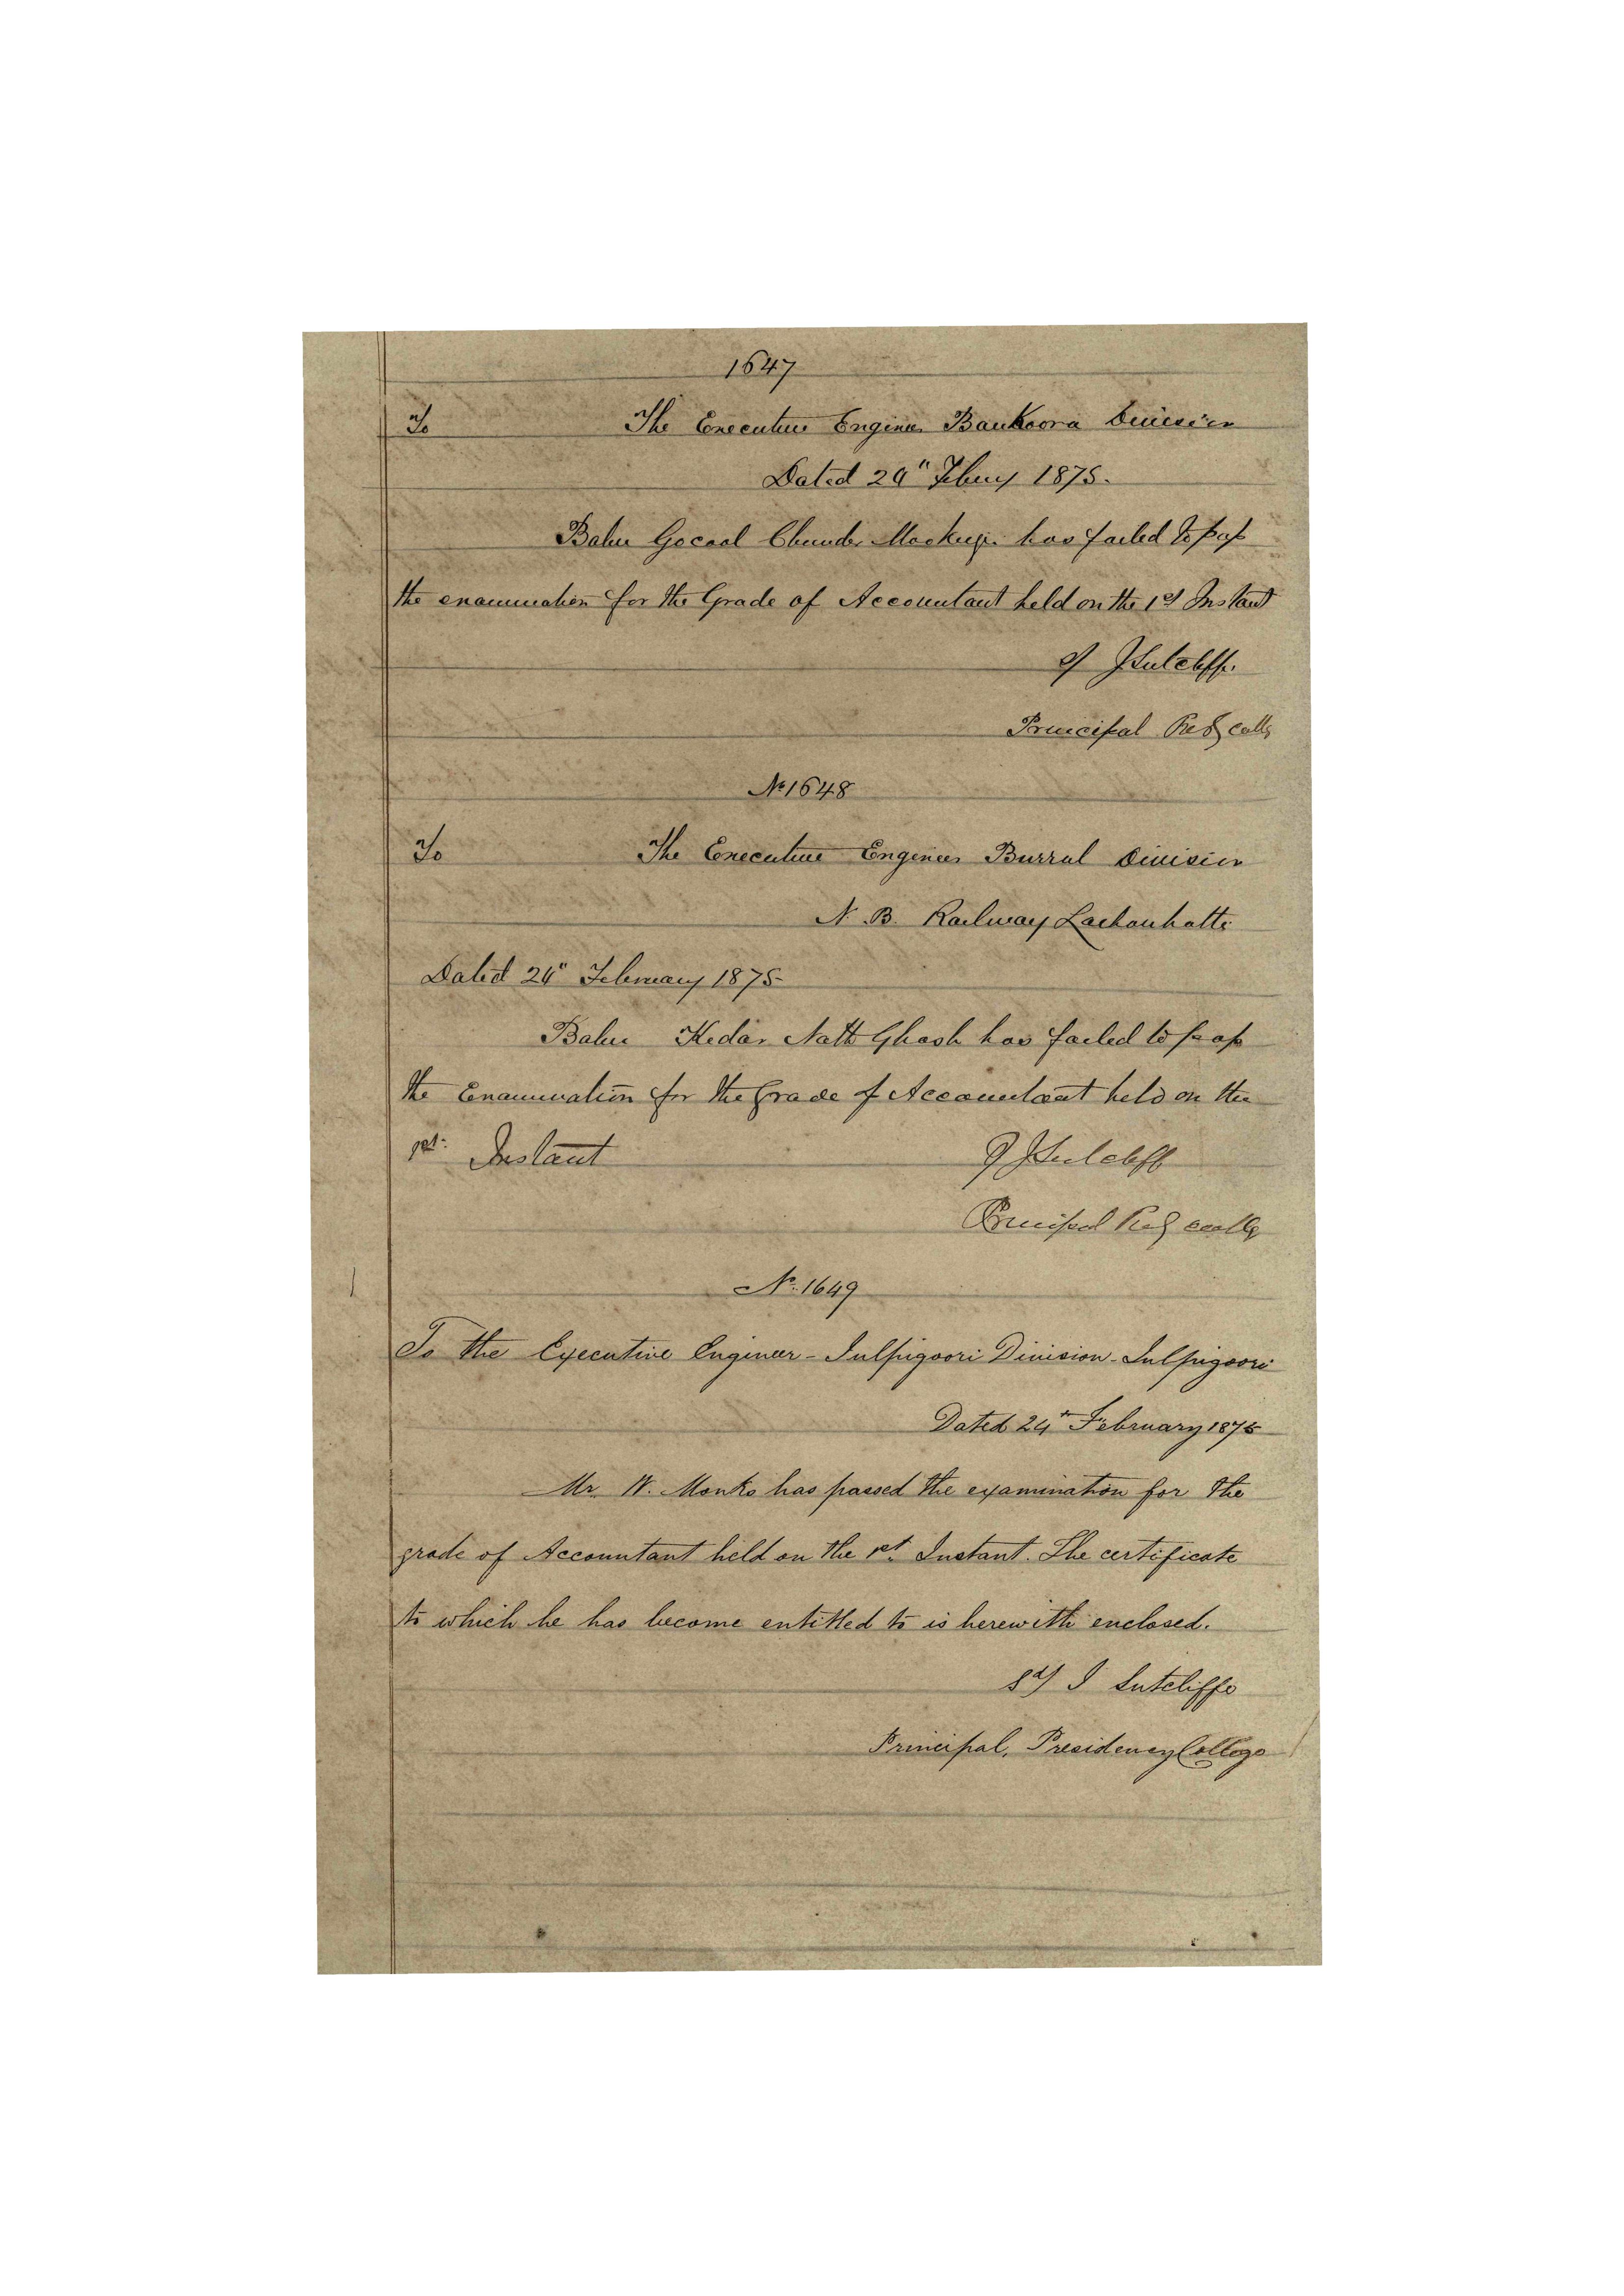 1647
To The Executive Engineer Bankoora Division
Dated 24" Febury 1875.
Babu Gocool Chunder Mookerji has failed to pass
the examination for the Grade of Accountant held on the 1st Instant
J Sutcliffe.
Principal Presy Collg
No 1648
To The Executive Engineer Burrul Division
N. B. Railway
Dated 24" February 1875
Babu Kedar Nath Ghosh has failed to pass
the Examination for the Grade of Accountant held on the
1st. Instant J Sutcliff
Principal Presy Collg
No. 1649
To the Executive Engineer - Julpigoori Division - Julpigoori
Dated 24th February 1875
Mr. W. Monks has passed the examination for the
grade of Accountant held on the 1st. Instant. The certificate
to which he has become entitled to is herewith enclosed.
Sd/ J Sutcliffe
Principal, Presidency College